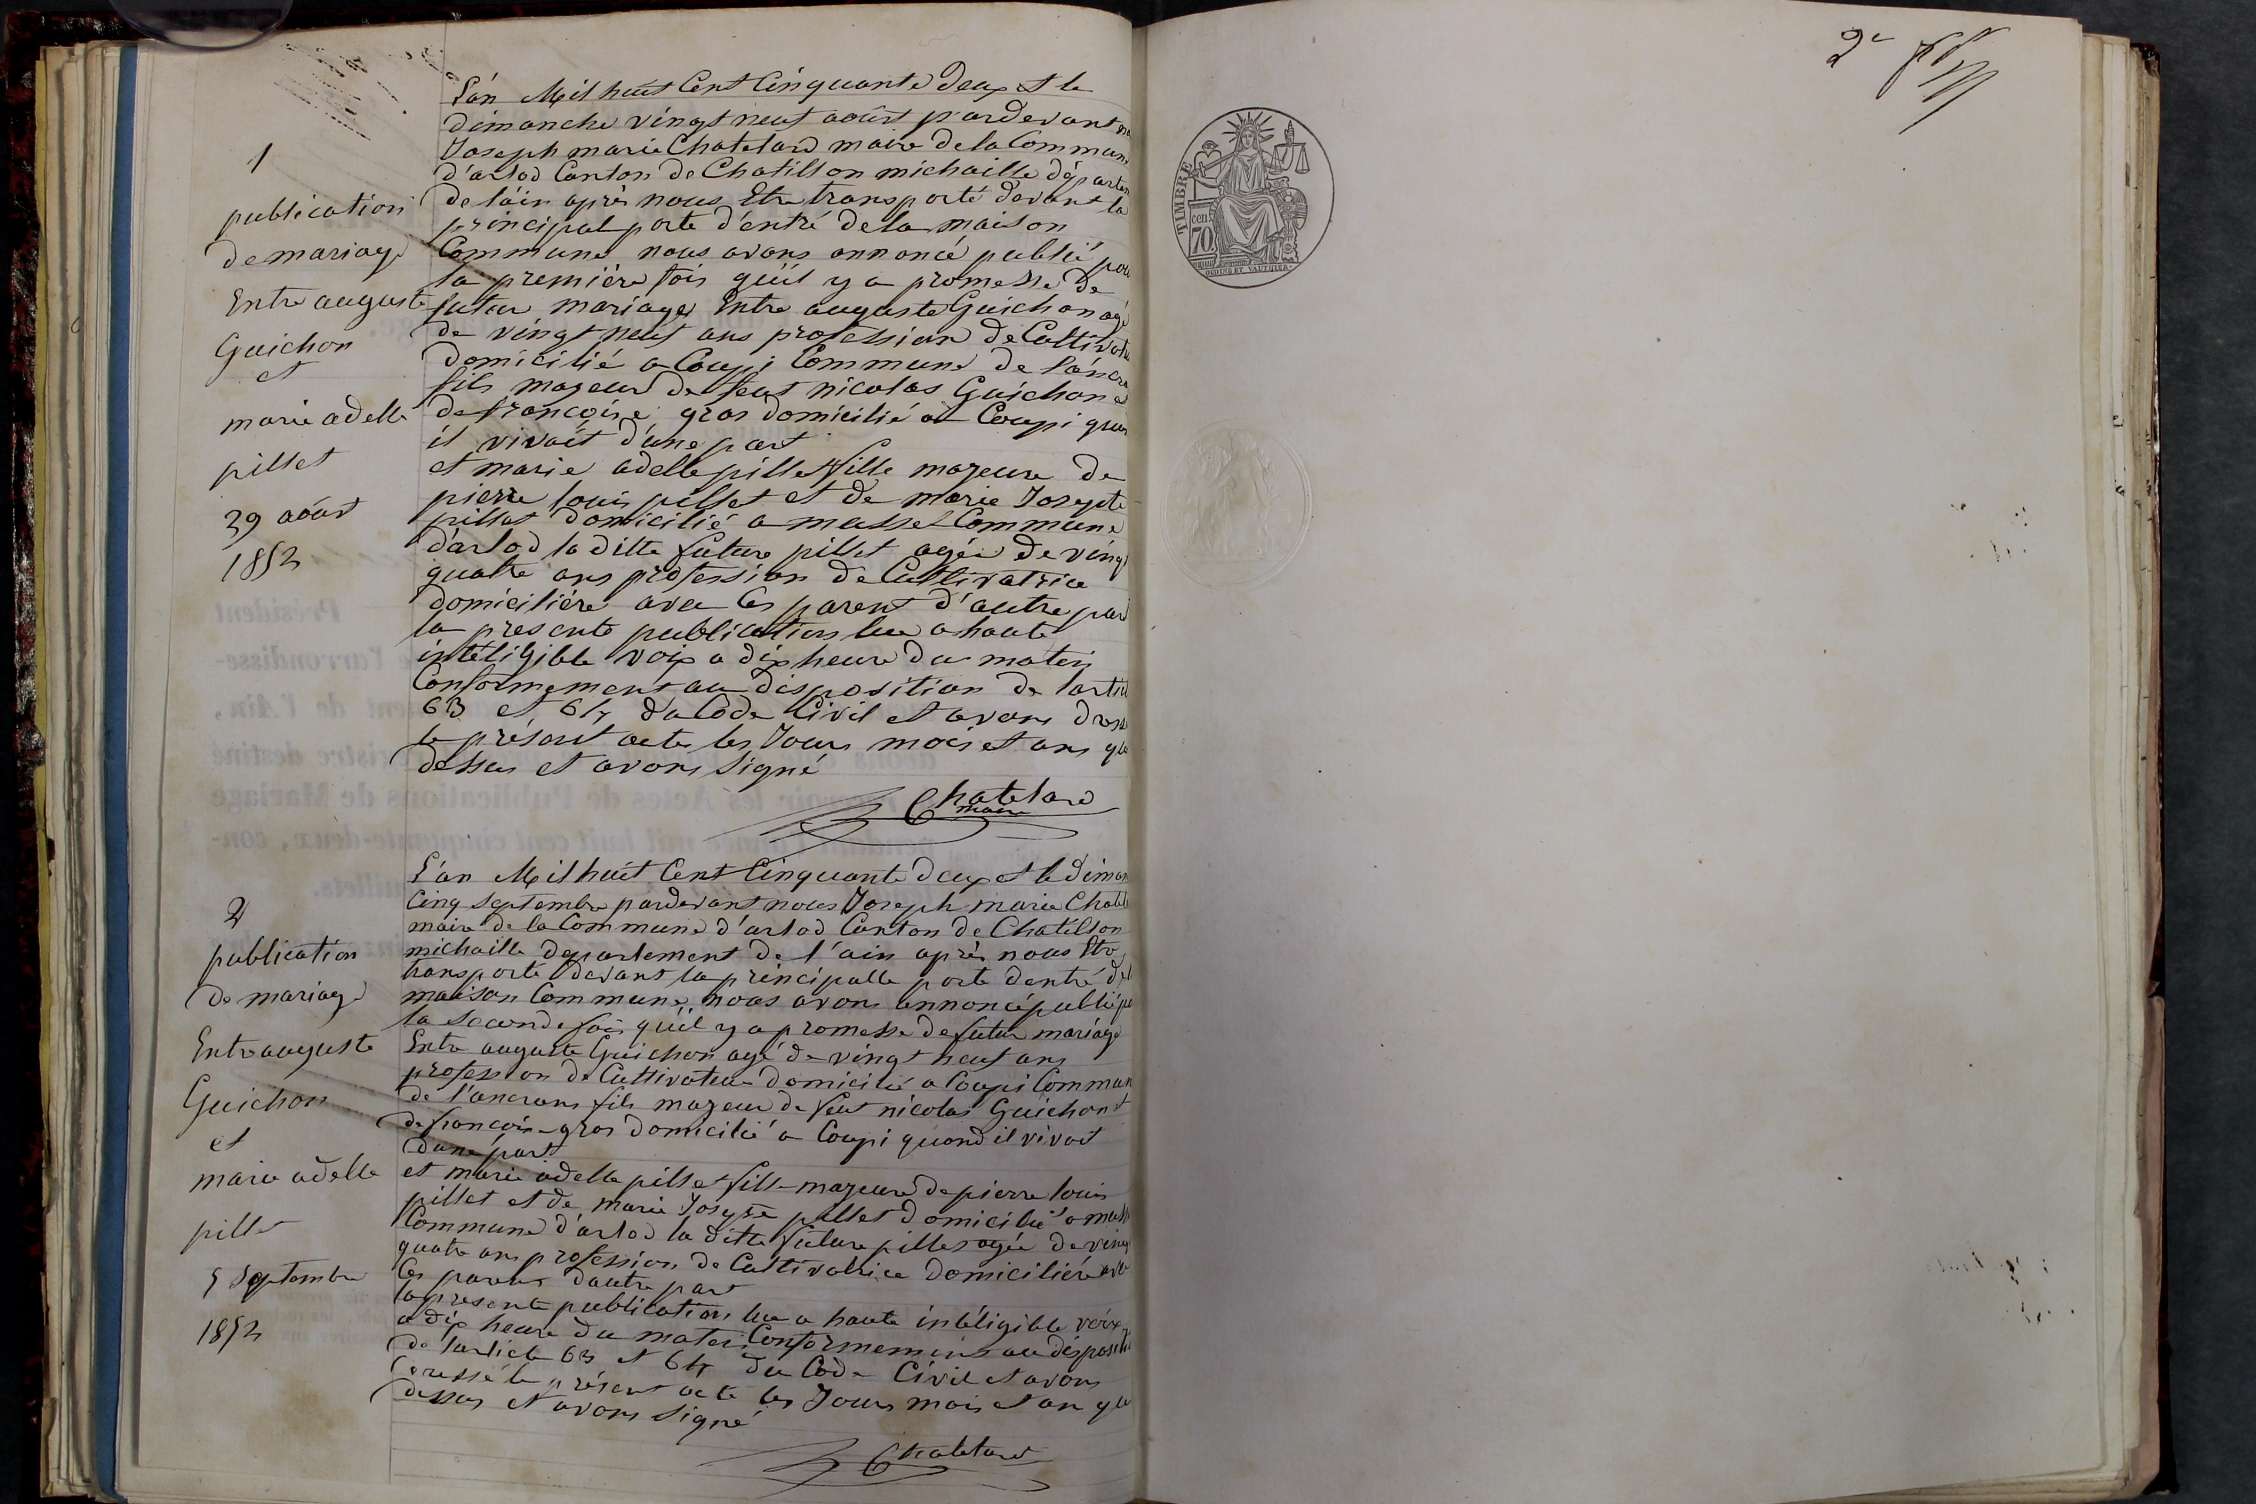 1
publication
de mariage
Entre auguste
Guichon
et
marie adelle
pillet
29 août
1852
L'an Mil huit Cent Cinquante deux et le
dimanche vingt neuf août pardevant
Joseph marie Chatelard maire de la Commune
d'arlod Canton de Chatillon michaille départem
de l'ain après nous Etre transporté devant la
principal porte d'entré de la maison
Commune nous avons annoncé publié pour
la première fois qu'il y a promesse de
futur mariage Entre auguste Guichon agé
de vingt neuf ans profession de Cultivate
domicilié a Coupi Commune de l'ancra
fils majeur de feut nicolas Guichon et
de françoise gros domicilié a Coupi quan
il vivait d'une part
et marie adelle pillet fille majeure de
pierre louis pillet et de marie Josepte
pillet domicilié a mussel Commune
d'arlod la ditte future pillet agée de vingt
quatre ans profession de Cultivatrice
domiciliére avec les parent d'autre part
la presente publication lue a haute
inteligible voix a dix heure du matin
Conformement au disposition de l'artic
63 et 64 du Code Civil et avons dress
le présent acte les Jours mois et ans que
dessus et avons signé
Chatelard
maire
2
publication
de mariage
Entre auguste
Guichon
et
marie adelle
pillet
5 septembre
1852
L'an Mil huit Cent Cinquante deux et le diman
Cinq septembre pardevant nous Joseph marie Chatel
maire de la Commune d'arlod Canton de Chatillon
michaille departement de l'ain après nous Etre
transporté devant la principalle porte d'entré de l
maison Commune nous avons annoncé publié po
la seconde fois qu'il y a promesse de futur mariage
Entre auguste Guichon agé de vingt neuf ans
profession de Cultivateur domicilié a Coupi Commun
de l'ancrans fils majeur de feut nicolas Guichon et
de françoise gros domicilié a Coupi quand il vivait
d'une part
et marie adelle pillet fille majeure de pierre louis
pillet et de marie Josepte pillet domicilié a muss
Commune d'arlod la ditte future pillet agée de ving
quatre ans profession de Cultivatrice domiciliére avec
les parent d'autre part
la presente publication lue a haute inteligible voix
a dix heure du matin Conformement au dispositi
de l'article 63 et 64 du Code Civil et avons
dressé le présent acte les Jours mois et an que
dessus et avons signé
Chatelard
2e
TIMBRE
cen.
70